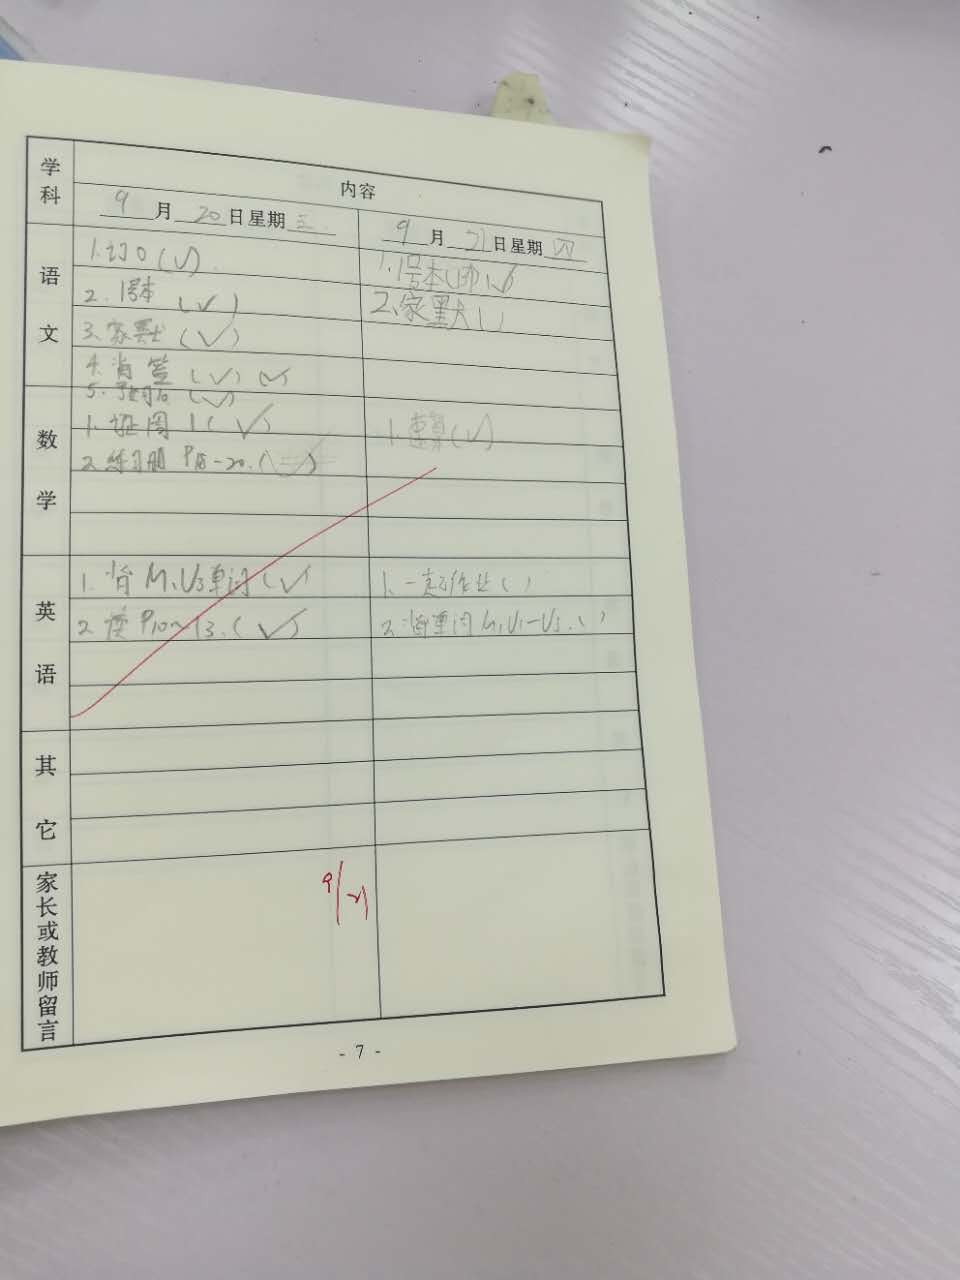 学科 内容
9月20日星期三 9月21日星期四
语文
1.订0(√) 1.1号本( )√
2.1号本(√) 2.家默( )
3.家默(√)
4.背 (√)(√)
5. (√)
数学
1. 周1(√) 1.速算(√)
2.练习册P18-20.(√)
英语
1.背M1U3单词(√) 1.一起作业( )
2.读P10~13.(√) 2.背单词M1U1-U3.( )
其它
家长或教师留言
9/21
- 7 -